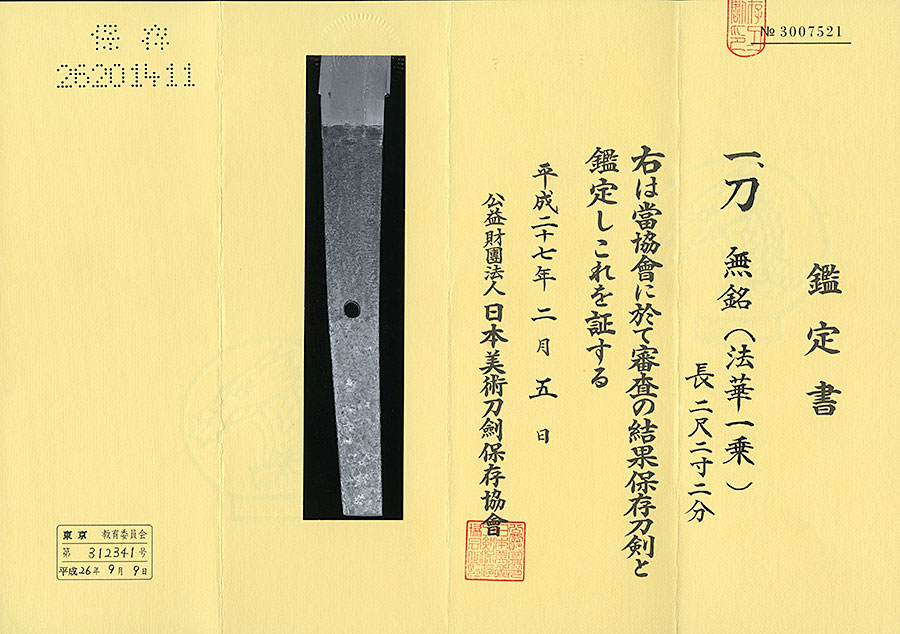 № 3007521
鑑定書
一、刀 無銘（法華一乗）
長二尺二寸二分
右は當協會に於て審査の結果保存刀剣と
鑑定しこれを証する
平成二十七年二月五日
公益財團法人日本美術刀劍保存協會
保存
26201411
東京 教育委員会
第 312341号
平成26年9月9日